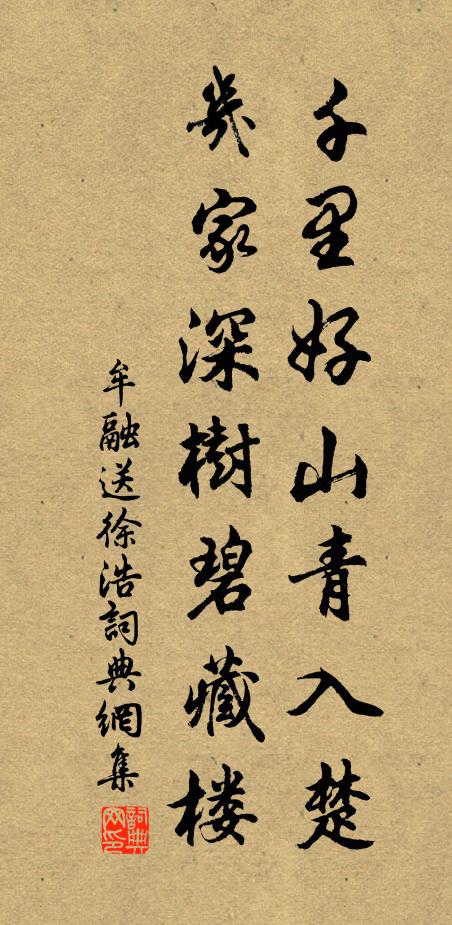 千里好山青入楚
几家深樹碧藏楼
牟融送徐浩詞典網集
詞典网印